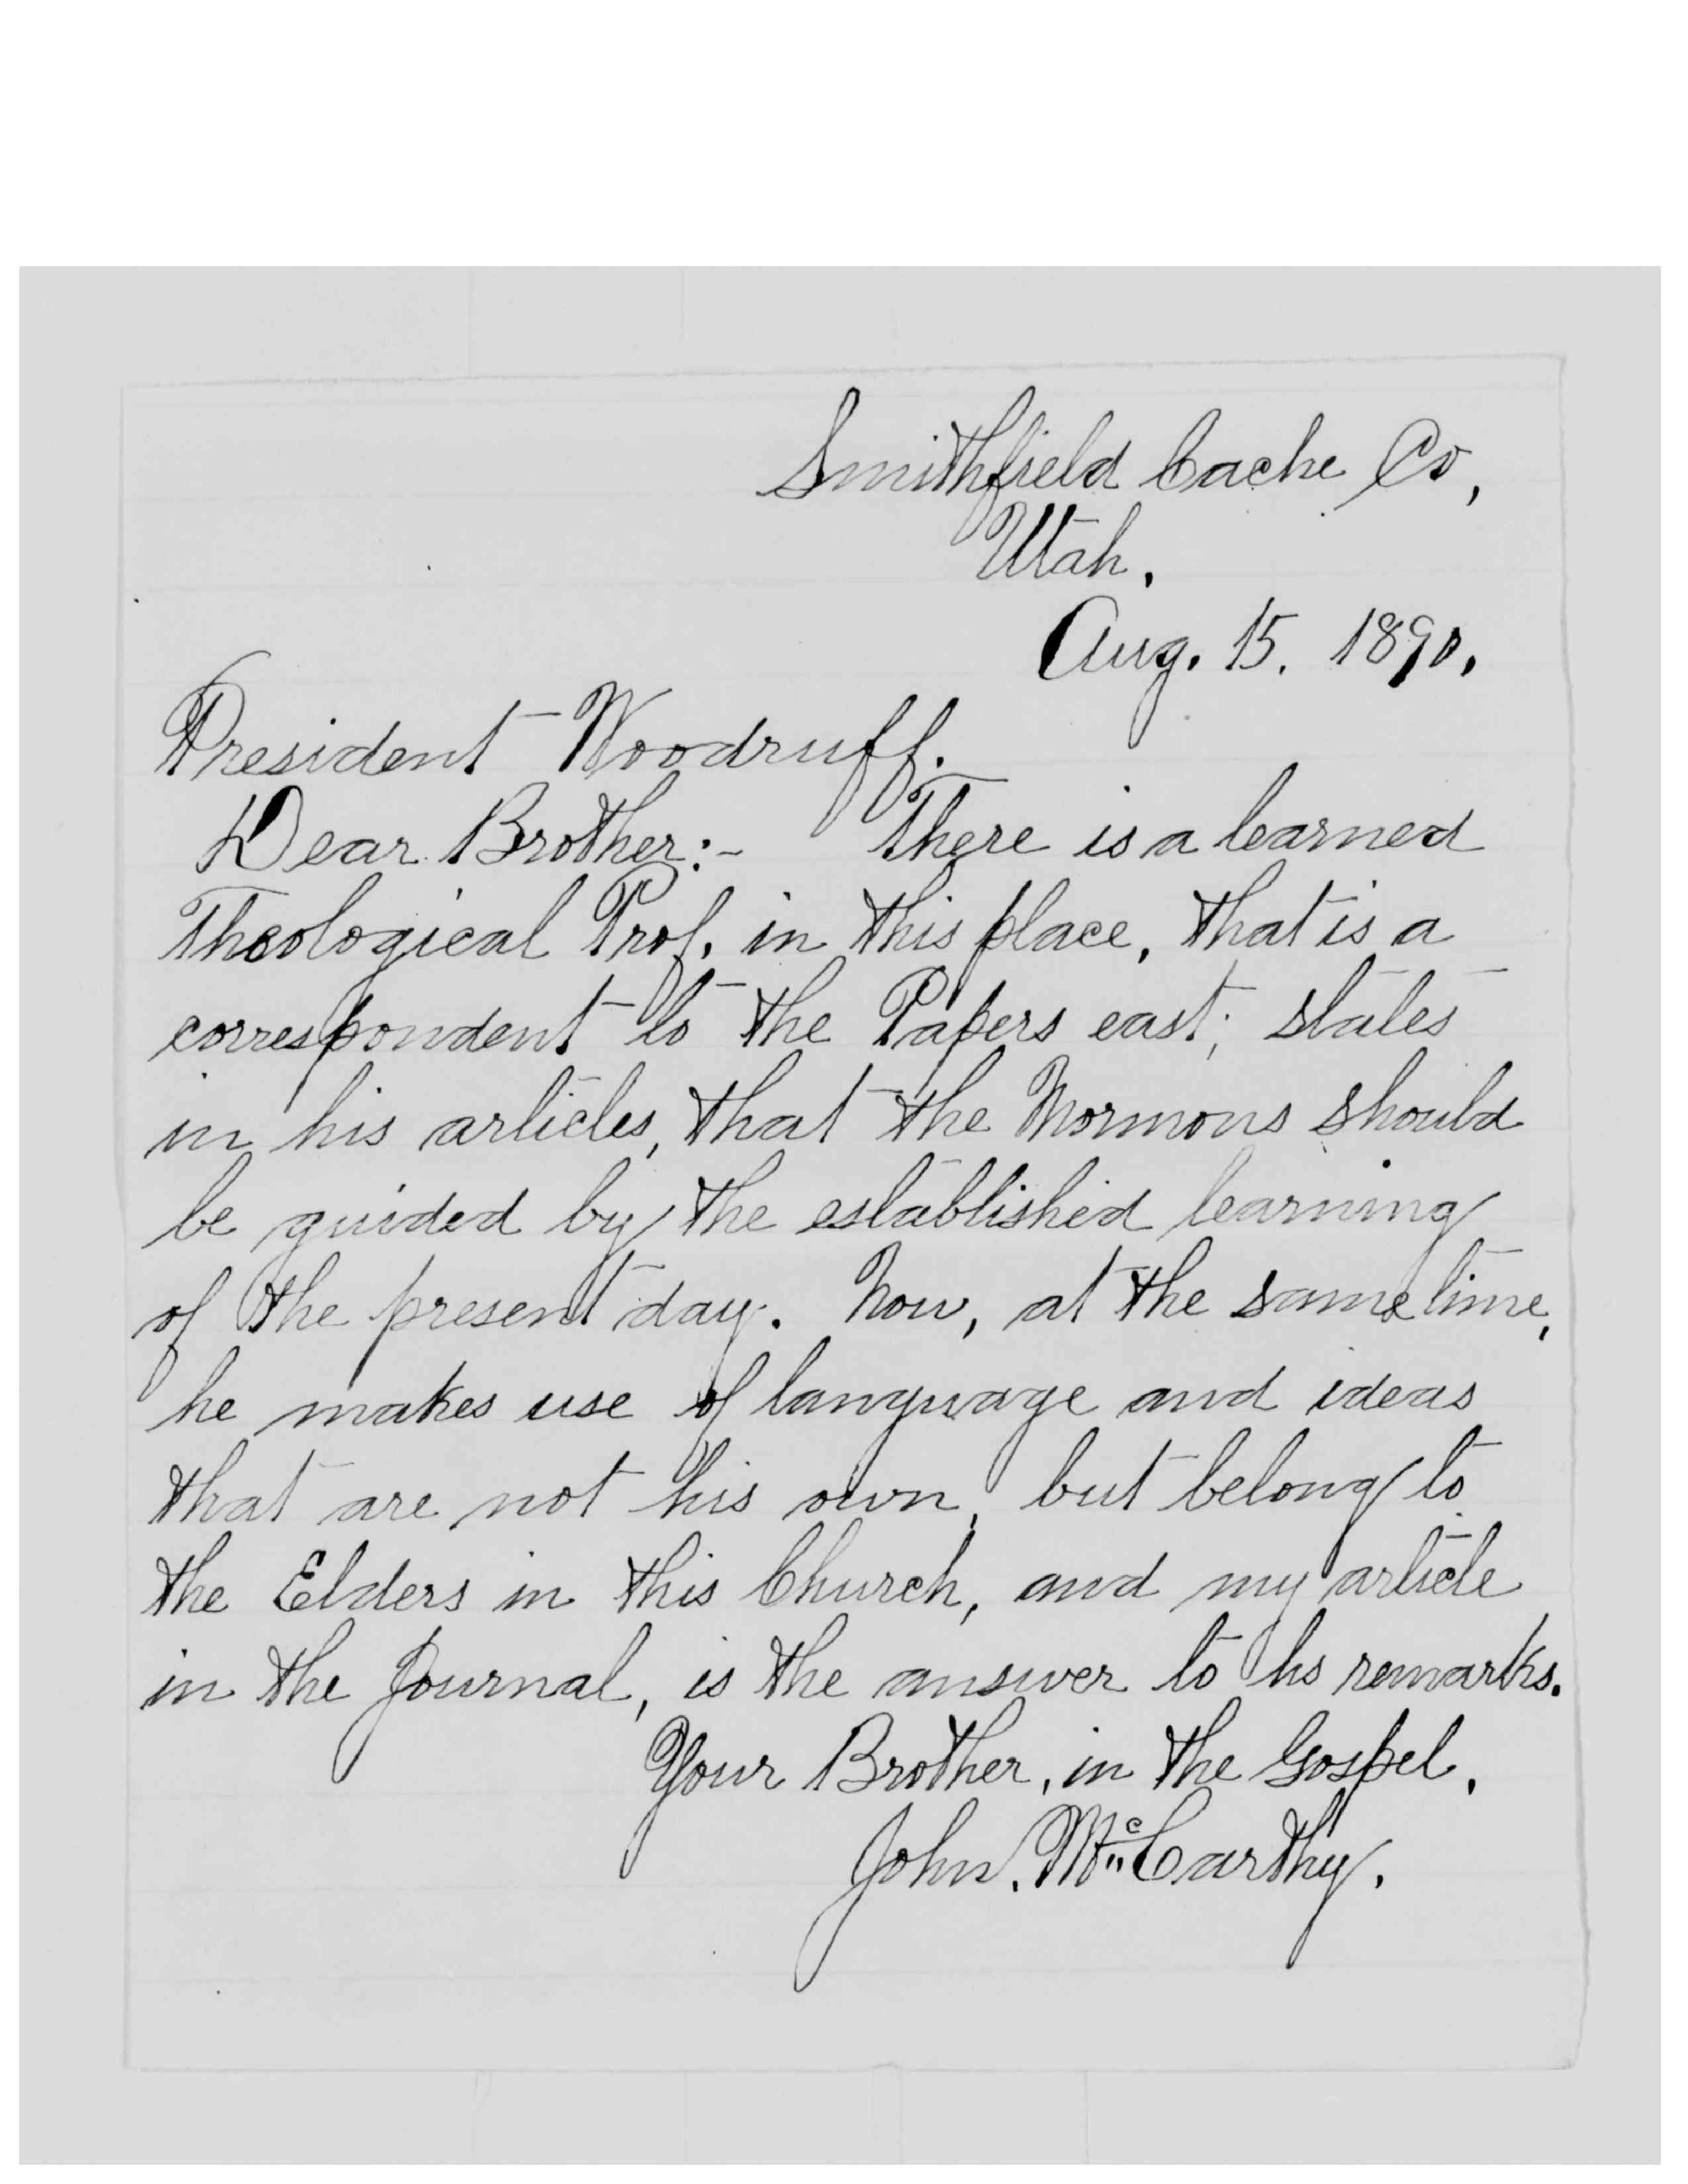 Smithfield Cache Co,
Utah.
Aug. 15. 1890.
President Woodruff.
Dear Brother:- There is a learned
Theological Prof. in this place, that is a
correspondent to the Papers east; states
in his articles, that the Mormons should
be guided by the established learning
of the present day. Now, at the same time,
he makes use of language and ideas
that are not his own, but belong to
the Elders in this Church, and my article
in the Journal, is the answer to hs remarks.
Your Brother, in the Gospel.
John. McCarthy.